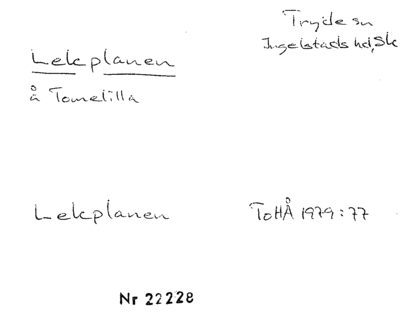 Tryde sn
Ingelstads hd, Sk
Lekplanen
å Tomelilla
Lekplanen
ToHÅ 1979:77
Nr 22228